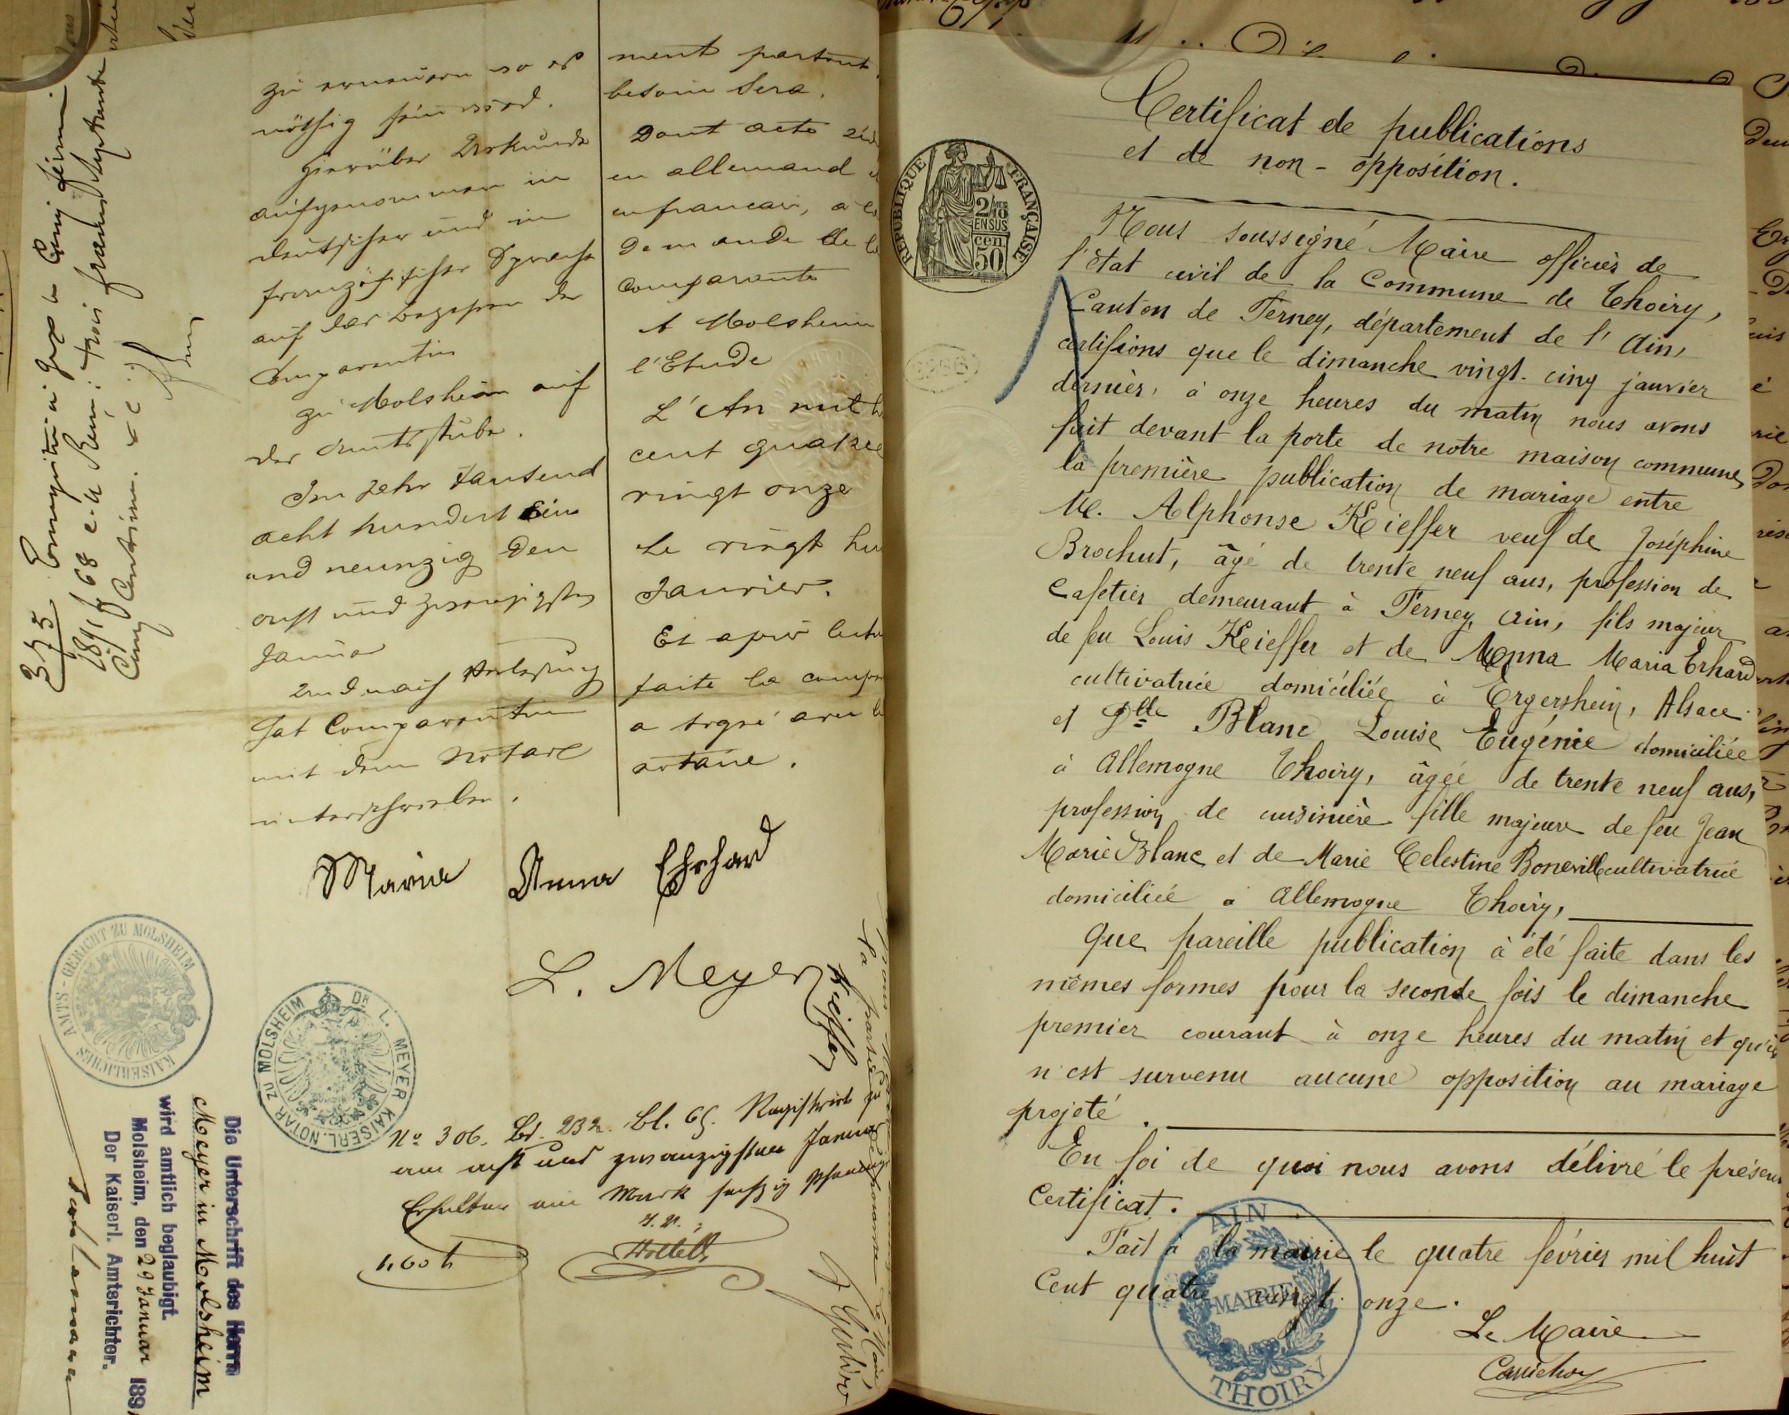 zu erneuern so es
nöthig sein wird.
Hierüber Urkunde
aufgenommen in
deutscher und in
französischer Sprache
auf das Begehren der
Comparentin
zu Molsheim auf
der Amtsstube.
Im Jahr Tausend
acht hundert Ein
und neunzig den
acht und zwanzigsten
Januar
Und nach Vorlesung
hat Comparentin
mit dem Notare
unterschrieben.
ment partout
besoin sera.
Dont acte
en allemand
en francais, a
demande de
comparante
A Molsheim
l'Etude
L'An mil
cent quatre
vingt onze
Le vingt
Janvier.
Et après
faite la
a signé avec
notaire.
Maria Anna Ehrhard
L. Meyer
KAISERLICHES AMTS-GERICHT ZU MOLSHEIM
DR L. MEYER KAISERL. NOTAR ZU MOLSHEIM
No 306. Bd. 232. Bl. 65. Registrirt zu
am acht und zwanzigsten Januar
Erhalten ein Mark sechzig Pfennig
1.60
Die Unterschrift des Herrn
Meyer in Molsheim
wird amtlich beglaubigt.
Molsheim, den 29 Januar 189
Der Kaiserl. Amtsrichter.
Certificat de publications
et de non-opposition.
REPUBLIQUE FRANÇAISE
2/10 EN SUS
50 cen
Nous soussigné Maire officier de
l'état civil de la Commune de Thoiry,
Canton de Ferney, département de l'Ain,
certifions que le dimanche vingt-cinq janvier
dernier, à onze heures du matin nous avons
fait devant la porte de notre maison commune
la première publication de mariage entre
M. Alphonse Kieffer veuf de Joséphine
Brochut, âgé de trente neuf ans, profession de
Cafetier demeurant à Ferney, Ain, fils majeur
de feu Louis Kieffer et de Anna Maria Erhard
cultivatrice domiciliée à Ergersheim, Alsace
et Dlle Blanc Louise Eugénie domiciliée
à Allemogne Thoiry, âgée de trente neuf ans,
profession de cuisinière fille majeure de feu Jean
Marie Blanc et de Marie Celestine Boneville cultivatrice
domiciliée à Allemogne Thoiry,
Que pareille publication à été faite dans les
mêmes formes pour la seconde fois le dimanche
premier courant à onze heures du matin et qu'il
n'est survenu aucune opposition au mariage
projeté.
En foi de quoi nous avons délivré le présent
Certificat.
Fait à la mairie le quatre février mil huit
Cent quatre vingt onze.
Le Maire
AIN
MAIRIE
THOIRY